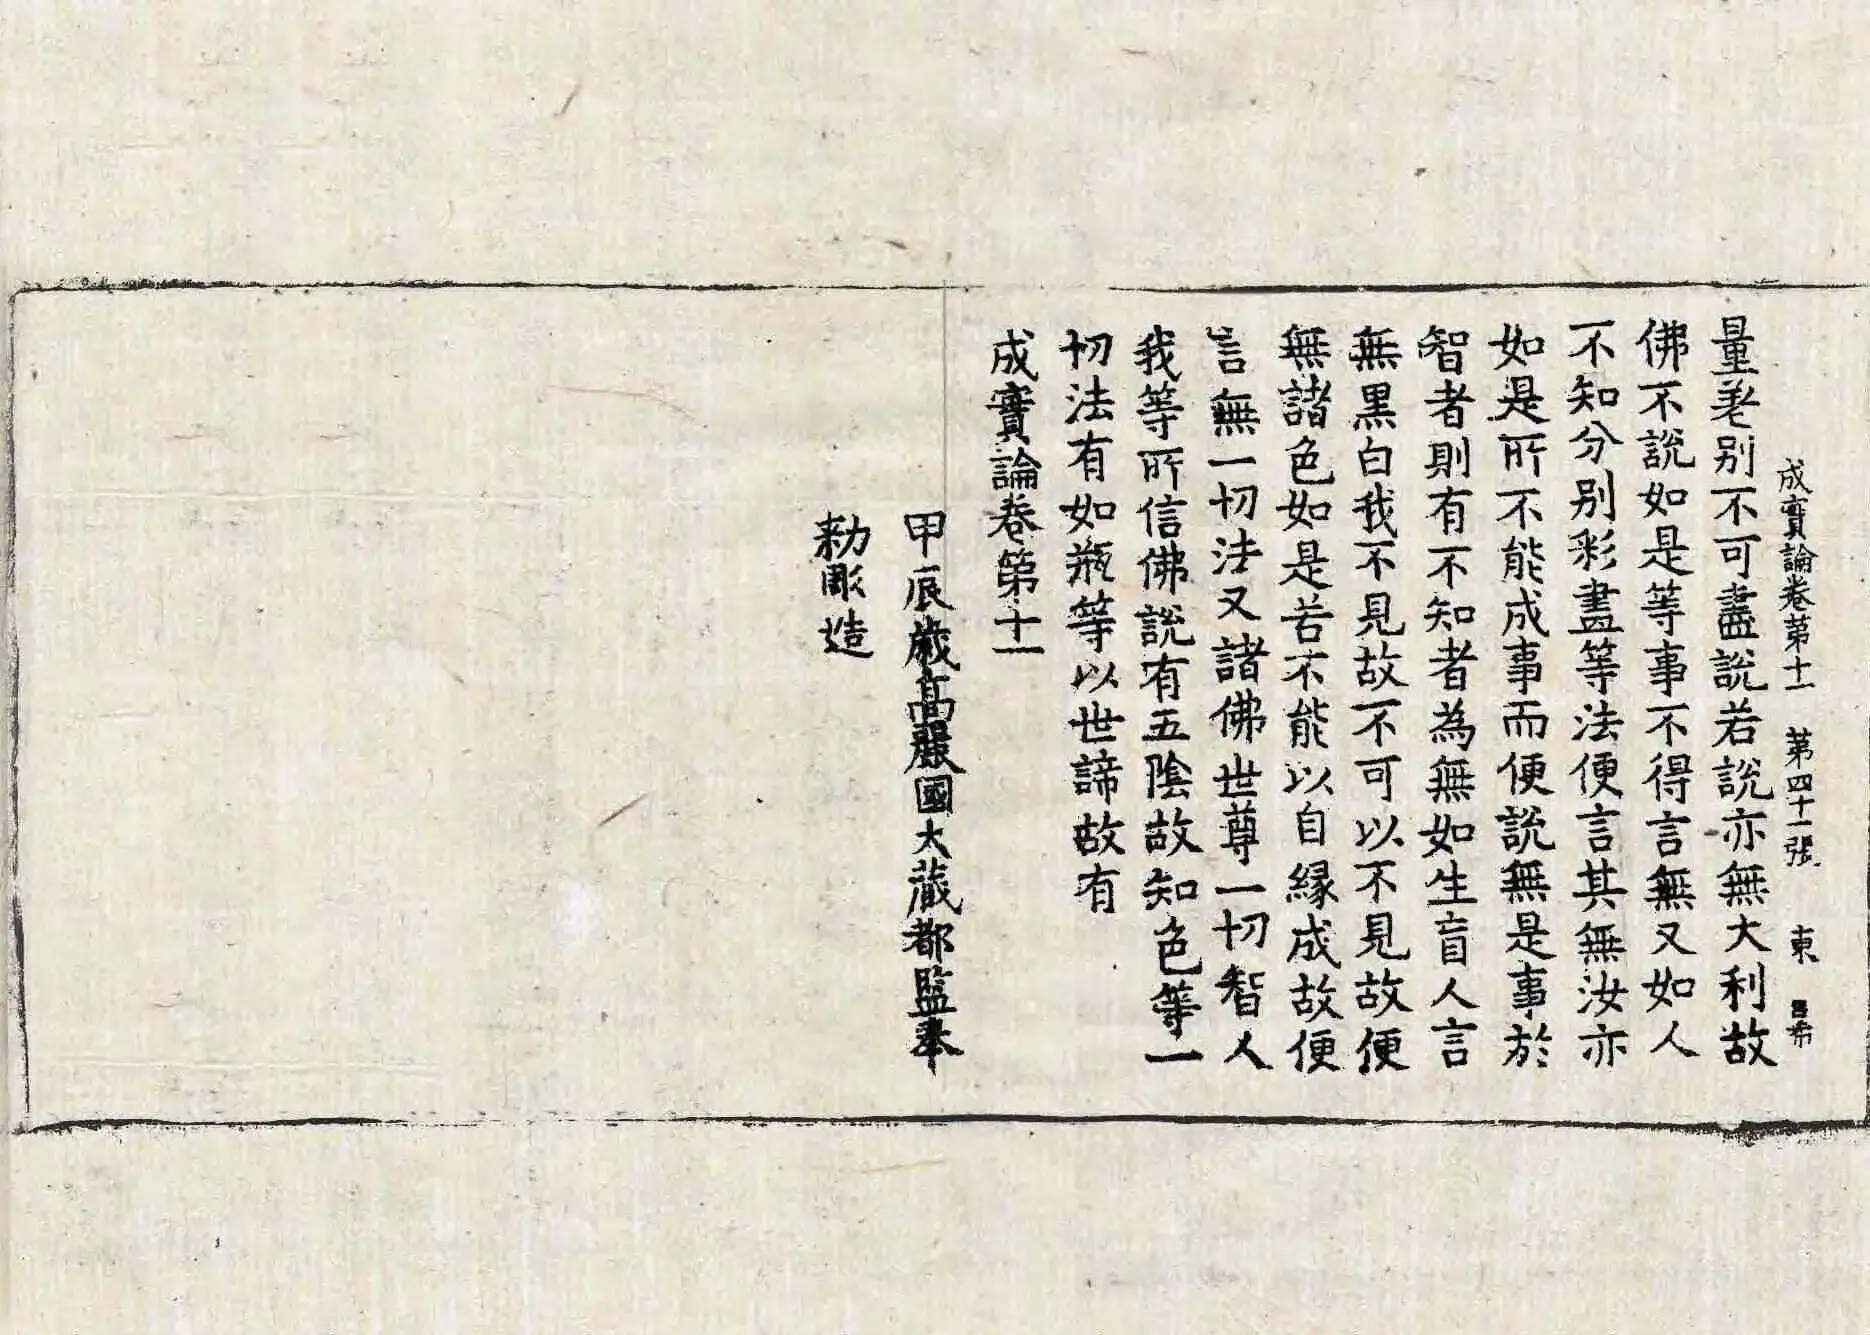 成實論卷第十一 第四十一張 東
量差別不可盡說若說亦無大利故
佛不說如是等事不得言無又如人
不知分別彩畫等法便言其無汝亦
如是所不能成事而便說無是事於
智者則有不知者為無如生盲人言
無黑白我不見故不可以不見故便
無諸色如是若不能以自緣成故便
言無一切法又諸佛世尊一切智人
我等所信佛說有五陰故知色等一
切法有如瓶等以世諦故有
成實論卷第十一
甲辰歲高麗國大藏都監奉
勑彫造